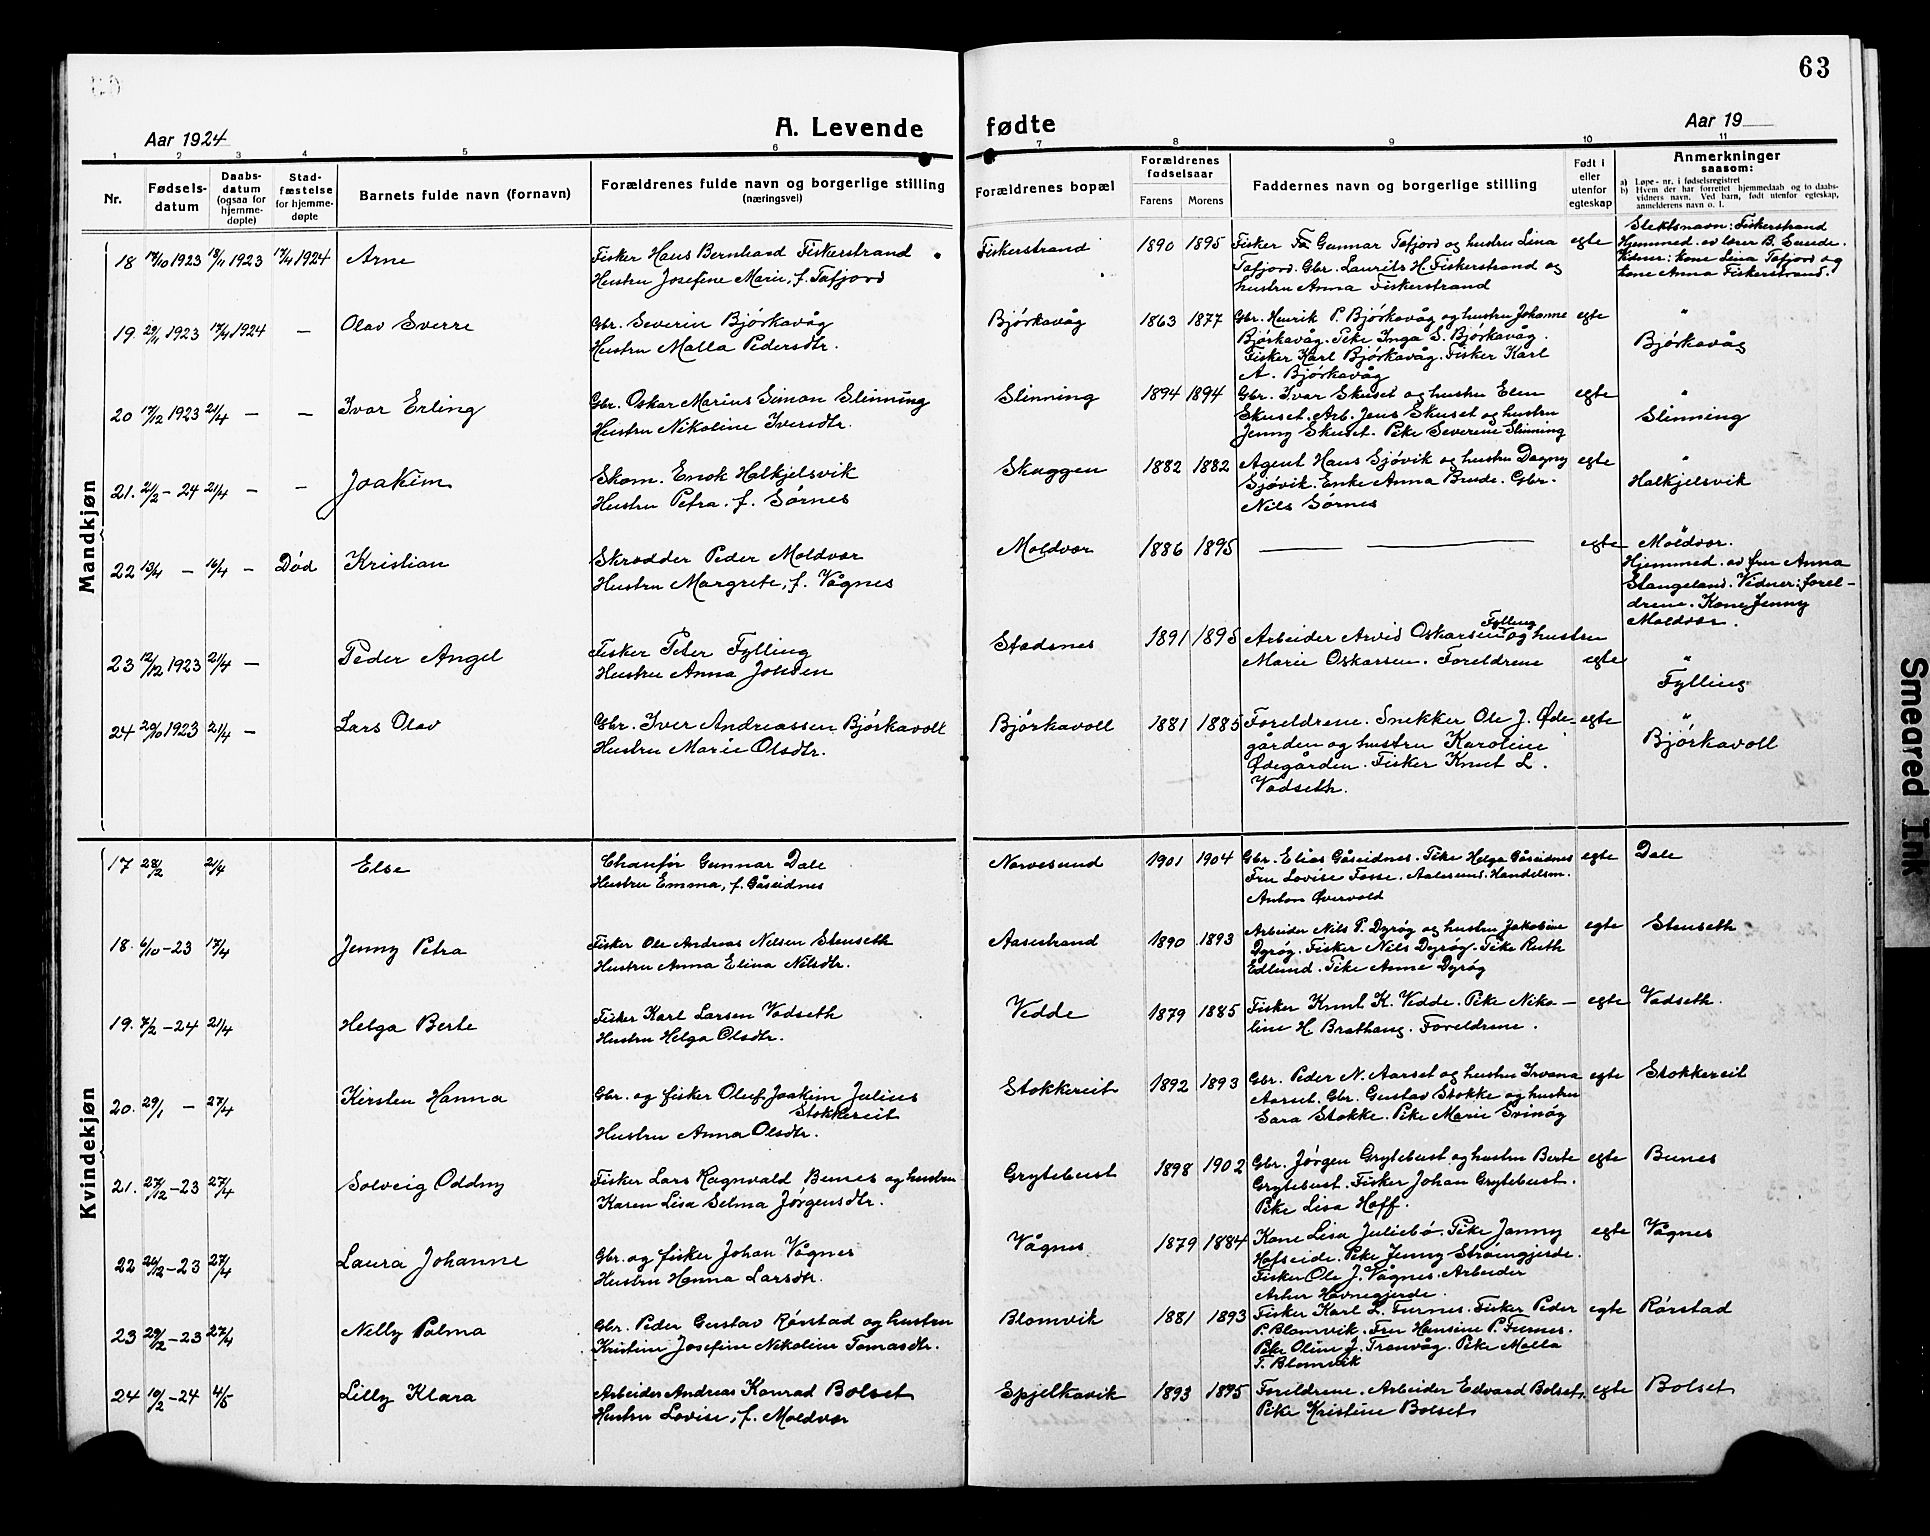 63
Aar 1924
A. Levende fødte
Aar 19
1 2 3 4 5 6 7 8 9 10 11
Nr.
Fødsels-
datum
Daabs-
datum
(ogsaa for
hjemme-
døpte)
Stad-
fæstelse
for hjemme-
døpte
Barnets fulde navn (fornavn)
Forældrenes fulde navn og borgerlige stilling
(næringsvei)
Forældrenes bopæl
Forældrenes
fødselsaar
Farens Morens
Faddernes navn og borgerlige stilling
Født i
eller
utenfor
egteskap
Anmerkninger
saasom:
a) Løpe-nr. i fødselsregistret
b) Hvem der har forrettet hjemmedaab og to daabs-
vidners navn. Ved barn, født utenfor egteskap,
anmelderens navn o. l.
Mandkjøn
18 17/10 1923 18/11 1923 17/4 1924 Arne
Fisker Hans Bernhard Fiskerstrand
Hustru Josefine Marie, f. Tafjord
Fiskerstrand 1890 1895
Fisker Fr. Gunnar Tafjord og hustru Lina
Tafjord. Gbr. Laurits H. Fiskerstrand og
hustru Anna Fiskerstrand
egte
Slektsnavn: Fiskerstrand
Hjemmed. av lærer B. Sunde.
Vidner: kone Lina Tafjord og
kone Anna Fiskerstrand.
19. 29/11 1923 17/4 1924 — Olav Sverre
Gbr. Severin Bjørkavåg
Hustru Malla Pedersdtr.
Bjørkavåg 1863 1877
Gbr. Henrik P. Bjørkavåg og hustru Johanne
Bjørkavåg. Pike Inga S. Bjørkavåg.
Fisker Karl Bjørkavåg. Fisker Karl
A. Bjørkavåg
egte
"
Bjørkavåg
20 17/12 1923 21/4 — — Ivar Erling
Gbr. Oskar Marius Simon Slinning
Hustru Nikoline Iversdtr.
Slinning 1894 1894
Gbr. Ivar Skuset og hustru Elen
Skuset. Arb. Jens Skuset og hustru
Jenny Skuset. Pike Severine Slinning
egte
"
Slinning
21. 2/2 - 24 21/4 — — Joakim
Skom. Enok Halkjelsvik
Hustru Petra. f. Sørnes
Skuggen 1882 1882
Agent Hans Sjøvik og hustru Dagny
Sjøvik. Enke Anna Brude. Gbr.
Nils Sørnes
egte
"
Halkjelsvik
22 13/4 — 16/4 — Død Kristian
Skrædder Peder Moldvær
Hustru Margrete, f. Vågnes
Moldvær 1886 1895
— —
egte
"
Moldvær.
Hjemmed. av fru Anna
Stangeland. Vidner: forel-
drene. Kone Jenny
Moldvær.
23 12/12 1923 21/4 — Peder Angel
Fisker Peter Fylling
Hustru Anna Johsen
Stadsnes 1891 1895
Fylling
Arbeider Arvid Oskarsen og hustru
Marie Oskarsen. Foreldrene
egte
"
Fylling
24 20/10 1923 21/4 — Lars Olav
Gbr. Iver Andreassen Bjørkavoll
Hustru Marie Olsdtr.
Bjørkavoll 1881 1885
Foreldrene. Snekker Ole J. Øde-
gården og hustru Karoline
Ødegården. Fisker Knut L.
Vadseth.
egte
"
Bjørkavoll
Kvindekjøn
17 28/2 21/4 Else
Chaufør Gunnar Dale
Hustru Emma, f. Gåseidnes
Nørvesund 1901 1904
Gbr. Elias Gåseidnes. Pike Helga Gåseidnes
Fru Lovise Fosse. Aalesund. Handelsm.
Anton Øvervold
egte Dale
18. 6/10 - 23 17/4 Jenny Petra
Fisker Ole Andreas Nelsen Stenseth
Hustru Anna Elina Nilsdtr.
Aasestrand 1890 1893
Arbeider Nils P. Dyrøy og hustru Jakobine
Dyrøy. Fisker Nils Dyrøy. Pike Ruth
Edlund. Pike Anne Dyrøy
egte Stenseth
19. 7/2 - 24 21/4 Helga Berte
Fisker Karl Larsen Vadseth
Hustru Helga Olsdtr.
Vedde 1879 1885
Fisker Knut K. Vedde. Pike Niko-
line H. Brathaug. Foreldrene.
egte Vadseth.
20. 29/1 — 27/4 Kirsten Hanna
Gbr. og fisker Oluf Joakim Julius
Stokkereit
Hustru Anna Olsdtr.
Stokkereit 1892 1893
Gbr. Peder N. Aarset og hustru Irvana
Aarset. Gbr. Gustav Stokke og hustru
Sara Stokke. Pike Marie Svinøy
egte Stokkereit
21. 27/12 - 23 27/4 Solveig Oddny
Fisker Lars Ragnvald Bunes og hustru
Karen Lisa Selma Jørgensdtr.
Grytebust 1898 1902
Gbr. Jørgen Grytebust og hustru Berte
Grytebust. Fisker Johan Grytebust.
Pike Lisa Hoff.
egte Bunes
22 26/12 - 23 27/4 Laura Johanne
Gbr. og fisker Johan Vågnes
Hustru Hanna Larsdtr.
Vågnes 1879 1884
Kone Lisa Juliebø. Pike Janny
Hafseide. Pike Jenny Strømgjerde.
Fisker Ole J. Vågnes. Arbeider
Arhur Havnegjerde.
egte Vågnes
23 29/12 - 23 27/4 Nelly Palma
Gbr. Peder Gustav Rørstad og hustru
Kristine Josefine Nikoline Tomasdtr.
Blomvik 1881 1893
Fisker Karl L. Furnes. Fisker Peder
P. Blomvik. Fru Hansine P. Furnes.
Pike Oline J. Tranvåg. Pike Malla
T. Blomvik
egte Rørstad
24 10/2 - 24 4/5 Lilly Klara
Arbeider Andreas Konrad Bolset
Hustru Lovise, f. Moldvær
Spjelkavik 1893 1895
Foreldrene. Arbeider Edvard Bolset.
Pike Kristine Bolset
egte Bolset
Smeared Ink